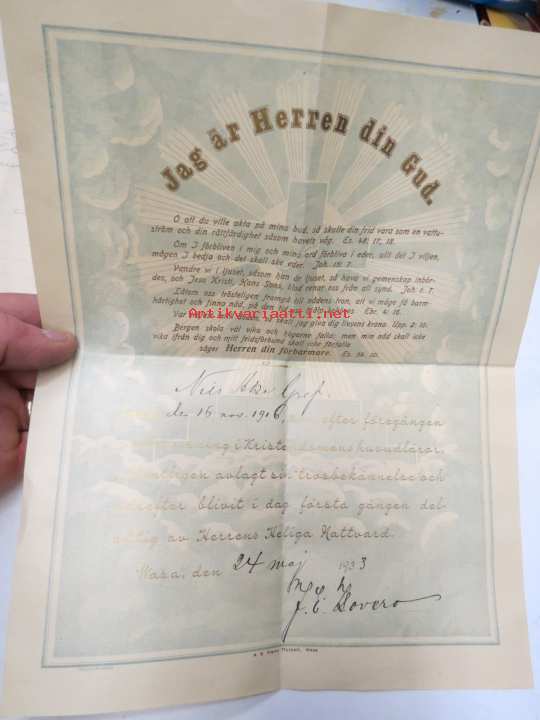 Jag är Herren din Gud.
O att du ville akta på mina bud, så skulle din frid vara som en vatten-
ström och din rättfärdighet såsom havets våg. Es. 48: 17, 18.
Om I förbliven i mig och mina ord förbliva i eder, allt det I viljen,
mågen I bedja och det skall ske eder. Joh. 15: 7.
Vandre wi i ljuset, såsom han är ljuset, så hava wi gemenskap inbör-
des, och Jesu Kristi, Hans Sons, blod renar oss från all synd. Joh. 1. 7.
Låtom oss trösteligen framgå till nådens tron, att vi måge få barm-
härtighet och finna nåd, på den tid Ebr. 4: 16.
Antikvariaatti.net
Var skall jag giva dig livsens krona. Upp. 2: 10.
Bergen skola väl vika och högarne falla; men min nåd skall icke
vika ifrån dig och mitt fridsförbund skall icke förfalla
säger Herren din förbarmare. Es. 54. 10.
Nils
de 15 nov. 1916, efter föregången
i Kristendomens huvudläror,
avlagt sin trosbekännelse och
blivit i dag första gången del-
aktig av Herrens Heliga Nattvard.
Wasa, den 24 maj 1933